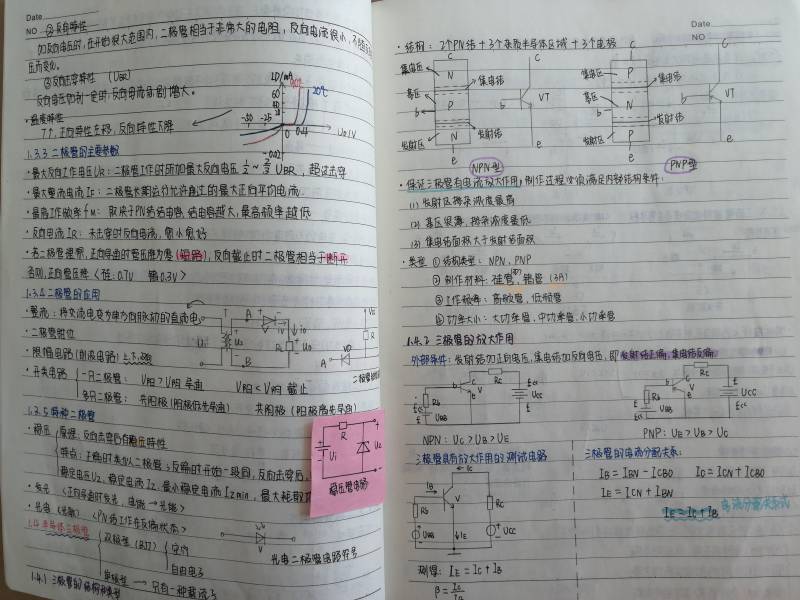 Date
NO
② 反向特性
加反向电压时,在开始很大范围内,二极管相当于非常大的电阻,反向电流很小,不随反
压而变化。
③反向击穿特性 (UBR)
反向电压加到一定时,反向电流剧增大。
·温度特性
T↑,正向特性左移,反向特性下降
ID/mA
60
40
20
-50 -25
0 0.4
-0.02
20℃
UD/V
1.3.3 二极管的主要参数
·最大反向工作电压UR:二极管工作时所加最大反向电压 1/2~2/3 UBR,超过击穿
·最大整流电流IF:二极管长期运行允许通过的最大正向平均电流.
·最高工作频率fM:取决于PN结结电容,结电容越大,最高频率越低
·反向电流IR:未击穿时反向电流,愈小愈好
·若二极管理想,正向导通时管压降为零(短路),反向截止时二极管相当于断开
否则,正向管压降<硅:0.7V 锗0.3V>
1.3.4 二极管的应用
·整流:将交流电变为单方向脉动的直流电
·二极管钳位
·限幅电路(削波电路)
·开关电路
一只二极管: V阳>V阴 导通 V阳<V阴 截止
多只二极管: 共阳极(阴极低先导通) 共阴极(阳极高先导通)
T
A
B
RL
Uo
R
VD
1.3.5 特种二极管
·稳压
原理:反向击穿后有稳压特性
特点:正偏时类似二极管;反偏时开始一段同,反向击穿后,
稳定电压UZ,稳定电流IZ,最小稳定电流IZmin,最大耗散功
·发光 (正向导通时发光,电能→光能)
·光电(光敏) <PN结工作在反偏状态>
光电二极管电路符号
R
Ui
Uz
稳压管电路
1.4 半导体三极管
双极型 (BJT)
空穴
自由电子
单极型 → 只有一种载流子
1.4.1 三极管的结构和类型
Date
NO
·结构: 2个PN结+3个杂质半导体区域+3个电极
集电区
基区
发射区
集电结
发射结
N
P
N
c
b
e
VT
NPN型
集电区
基区
发射区
集电结
发射结
P
N
P
c
b
e
VT
PNP型
·保证三极管有电流放大作用,制作过程必须满足内部结构条件:
(1) 发射区掺杂浓度最高
(2) 基区很薄,掺杂浓度最低
(3) 集电结面积大于发射结面积
·类型 ①结构类型: NPN、PNP
②制作材料:硅管、锗管(3A)
③工作频率:高频管,低频管
④功率大小:大功率管,中功率管,小功率管
1.4.2 三极管的放大作用
外部条件:发射结加正向电压,集电结加反向电压,即发射结正偏,集电结反偏
Rb
UBB
Rc
UCC
NPN: UC>UB>UE
Rb
UBB
Rc
UCC
PNP: UE>UB>UC
三极管具有放大作用的测试电路
IB
Ic
IE
Rb
Rc
UBB
UCC
V
测得: IE=IC+IB
β=
三极管的电流分配关系:
IB=IBN-ICBO IC=ICN+ICBO
IE=ICN+IBN
IE=IC+IB
电流分配关系式